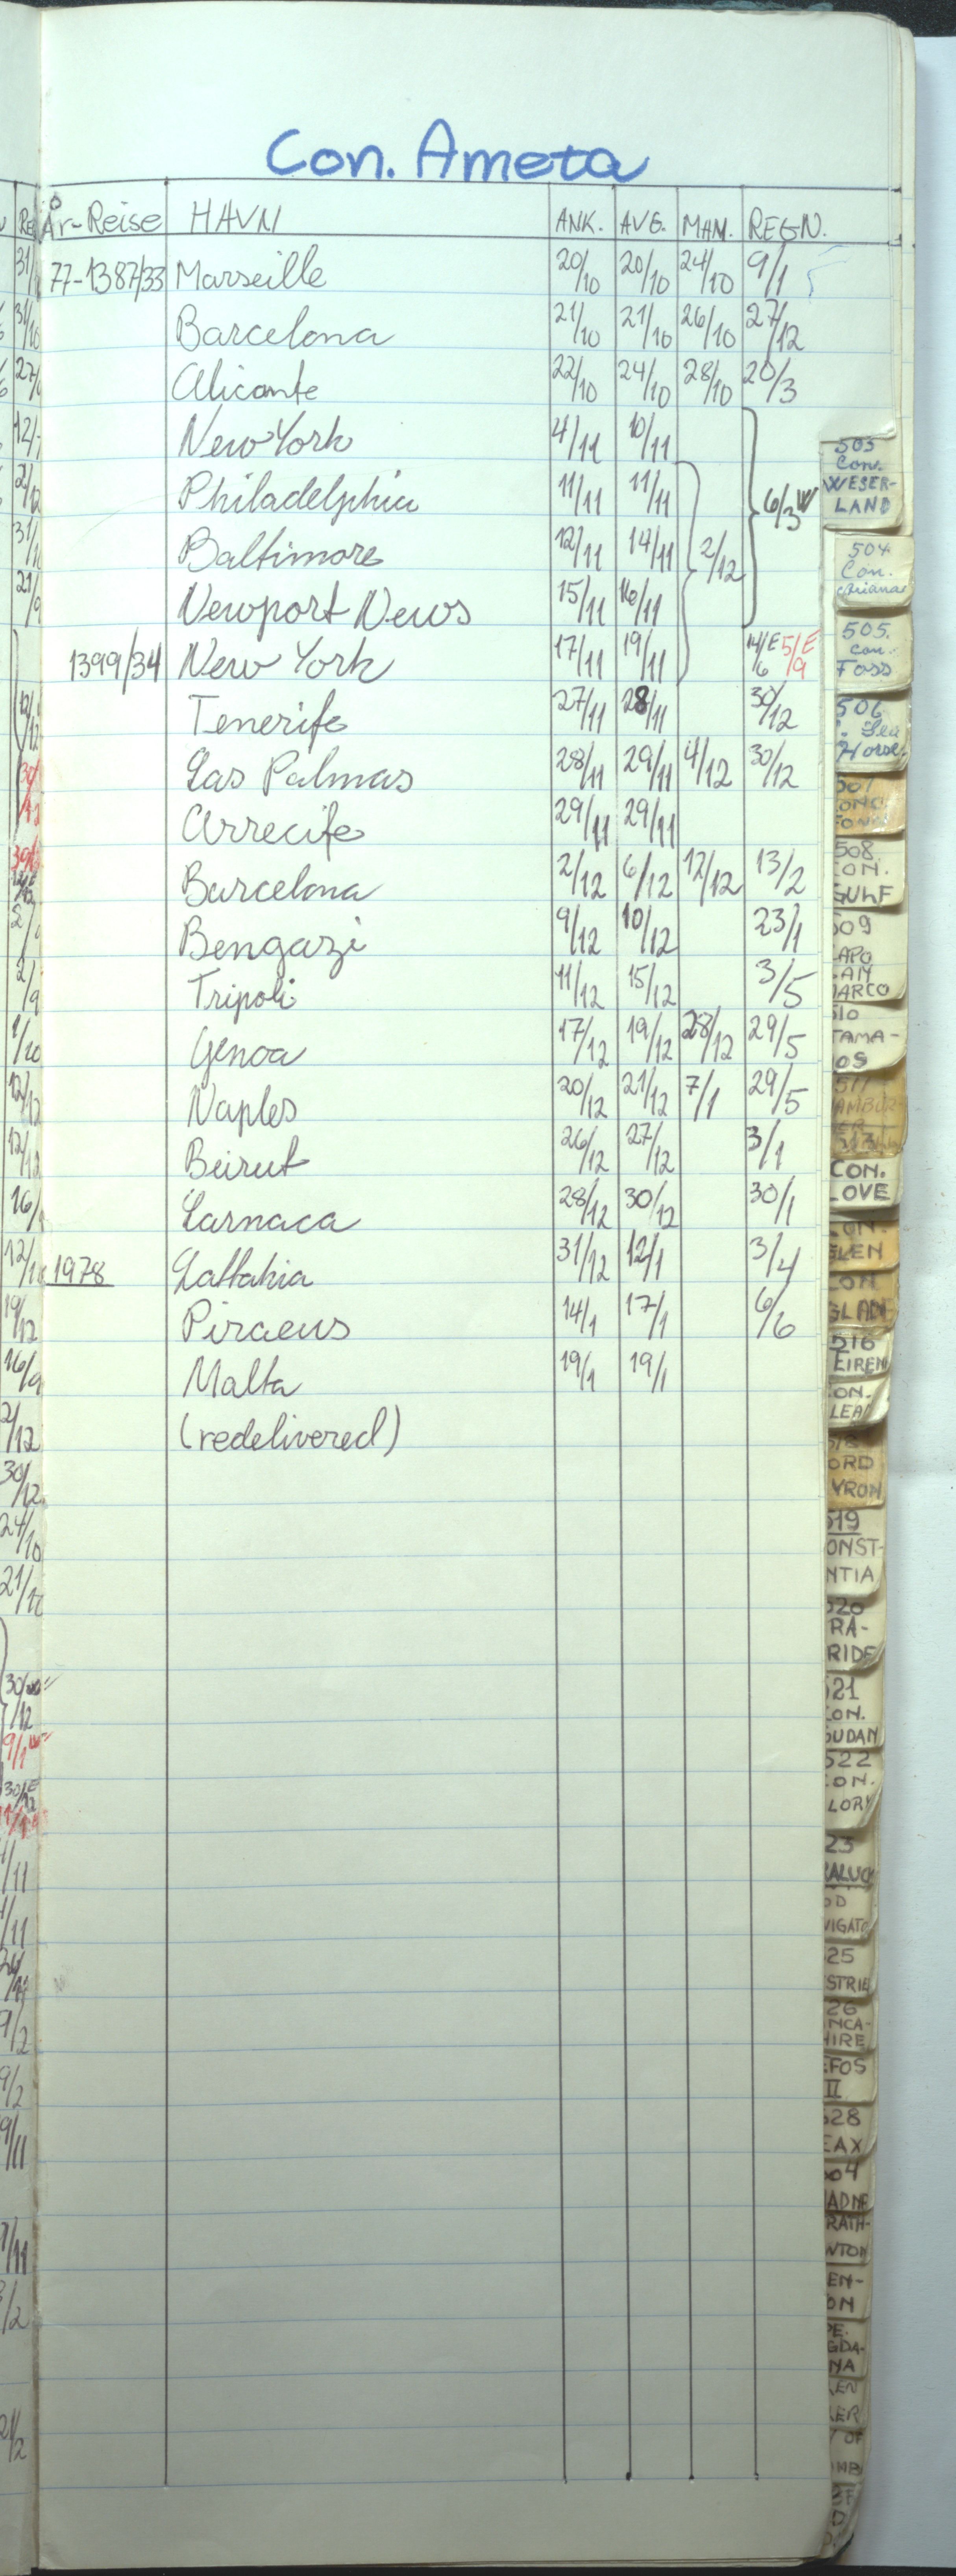 Con. Ameta
År-Reise HAVN ANK. AVG. MAM. REGN.
77-1387/33 Marseille 20/10 20/10 24/10 9/1
Barcelona 21/10 21/10 26/10 27/12
Alicante 22/10 24/10 28/10 20/3
New York 4/11 10/11
Philadelphia 11/11 11/11 6/3 W
Baltimore 12/11 14/11 2/12
Newport News 15/11 16/11
1399/34 New York 17/11 19/11 14/6 E 5/9 E
Tenerife 27/11 28/11 30/12
Las Palmas 28/11 29/11 4/12 30/12
Arrecife 29/11 29/11
Barcelona 2/12 6/12 12/12 13/2
Bengazi 9/12 10/12 23/1
Tripoli 11/12 15/12 3/5
Genoa 17/12 19/12 28/12 29/5
Naples 20/12 21/12 7/1 29/5
Beirut 26/12 27/12 3/1
Larnaca 28/12 30/12 30/1
1978 Lattakia 31/12 12/1 3/4
Piraeus 14/1 17/1 6/6
Malta 19/1 19/1
(redelivered)
503
Con.
WESER-
LAND
504
Con.
Ariana
505.
Con.
Foss
506
. Sea
Horse
508
CON.
GULF
509
CAPO
SAN
MARCO
510
TAMA-
OS
CON.
LOVE
CON.
GLEN
CON.
GLADE
516
EIRENE
CON.
LEAD
518
ORD
YRON
519
CONST-
NTIA
520
RA-
RIDE
521
CON.
SUDAN
522
CON.
LORY
23
25
26
NCA-
HIRE
EFOS
II
528
EAX
ADNE
RATH-
NTON
EN-
ON
GDA-
NA